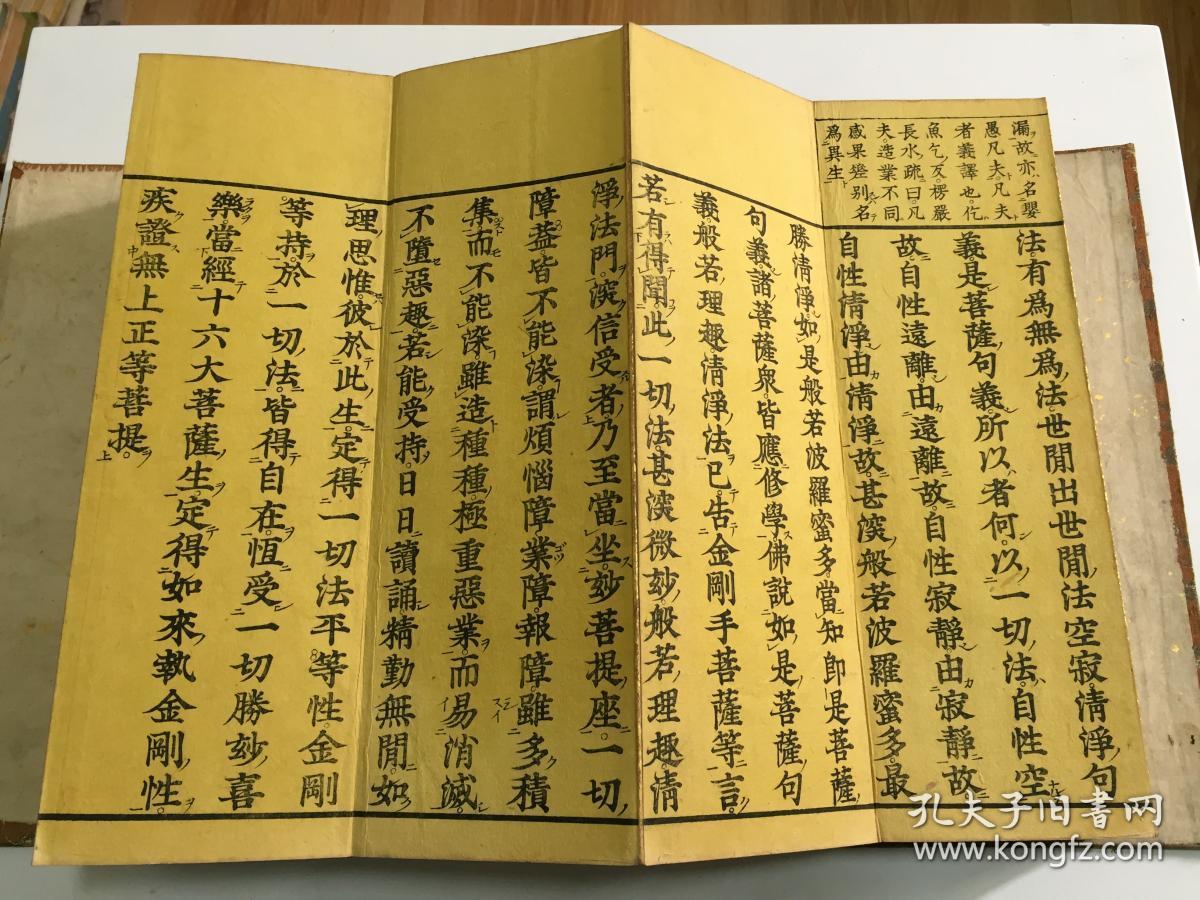 漏故亦名嬰
愚凡夫凡夫
者義譯也佗
魚乞反楞嚴
長水疏曰凡
夫造業不同
感果差别名
爲異生
法有爲無爲法世閒出世閒法空寂清淨句
義是菩薩句義所以者何以一切法自性空
故自性遠離由遠離故自性寂靜由寂靜故
自性清淨由清淨故甚深般若波羅蜜多最
勝清淨如是般若波羅蜜多當知卽是菩薩
句義諸菩薩衆皆應修學佛說如是菩薩句
義般若理趣清淨法已告金剛手菩薩等言
若有得聞此一切法甚深微玅般若理趣清
淨法門深信受者乃至當坐玅菩提座一切
障蓋皆不能染謂煩惱障業障報障雖多積
集而不能染雖造種種極重惡業而易消滅
不墮惡趣若能受持日日讀誦精勤無閒如
理思惟彼於此生定得一切法平等性金剛
等持於一切法皆得自在恆受一切勝玅喜
樂當經十六大菩薩生定得如來執金剛性
疾證無上正等菩提
孔夫子旧书网
www.kongfz.com